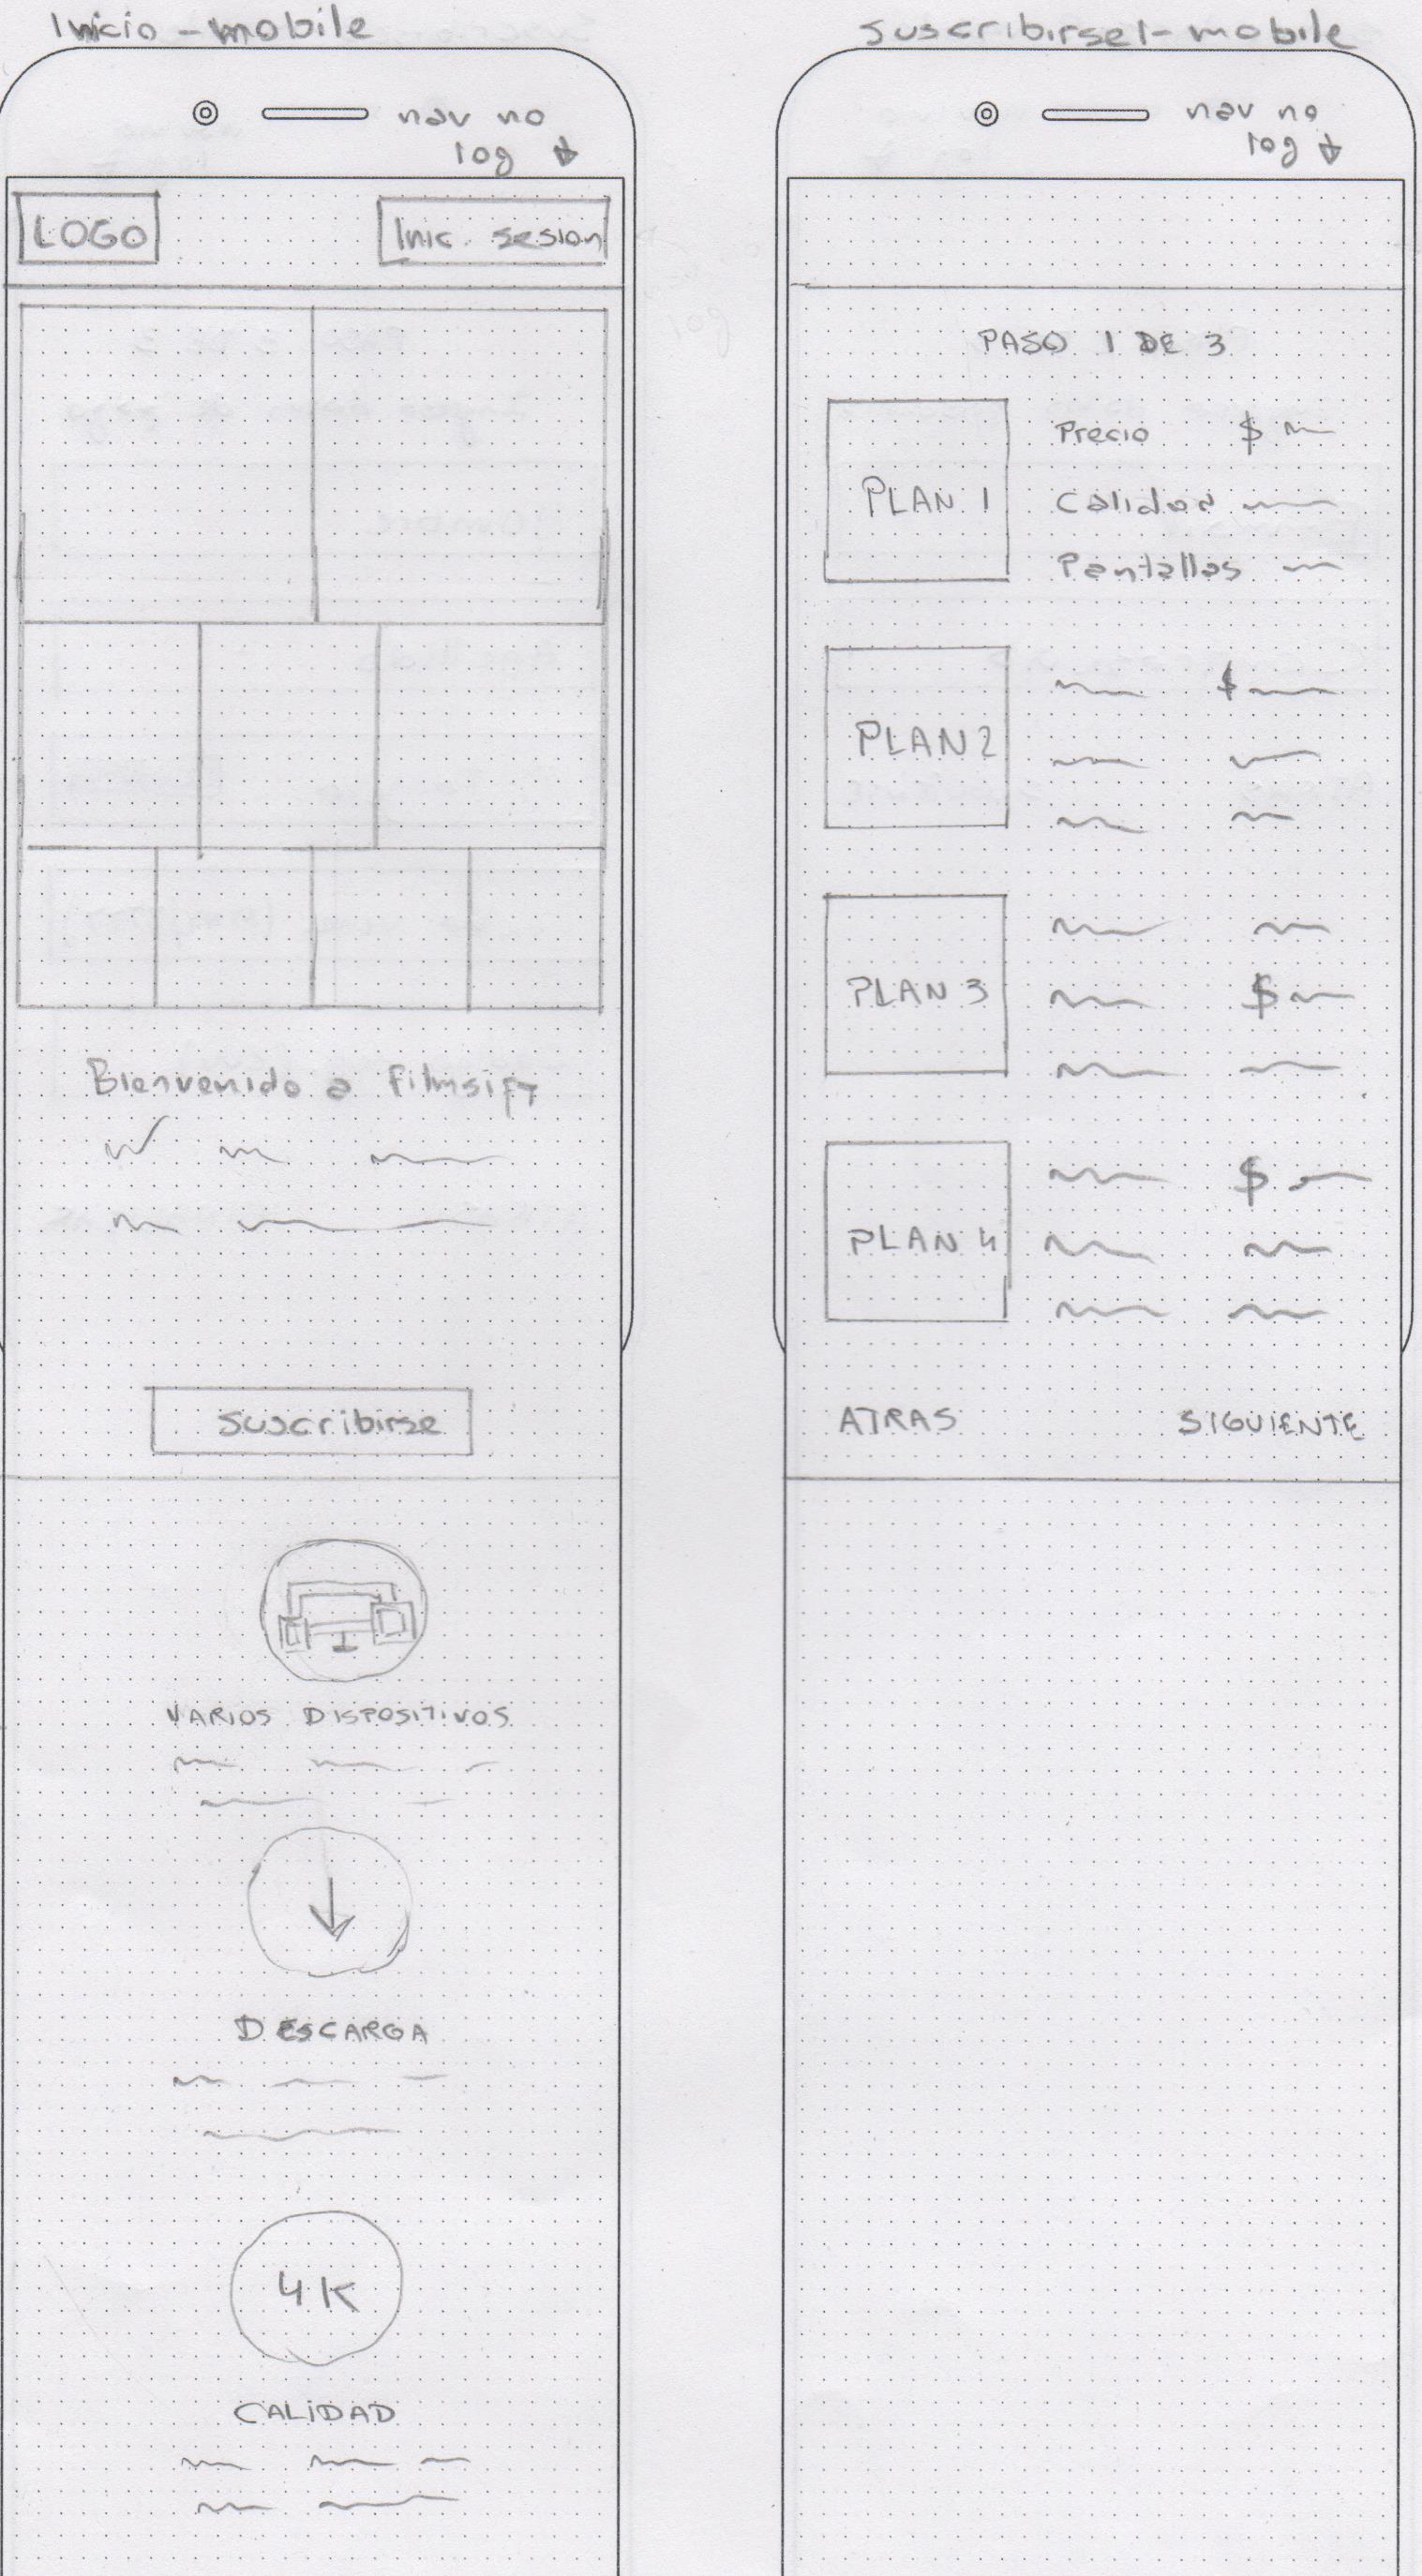 Inicio - mobile
nav no
log
LOGO
Inic. sesion
Bienvenido a filmsift
Suscribirse
VARIOS DISPOSITIVOS
DESCARGA
4K
CALIDAD
suscribirse1 - mobile
nav no
log
PASO 1 DE 3
PLAN 1
Precio $
Calidad
Pantallas
PLAN 2
$
PLAN 3
$
PLAN 4
$
ATRAS
SIGUIENTE